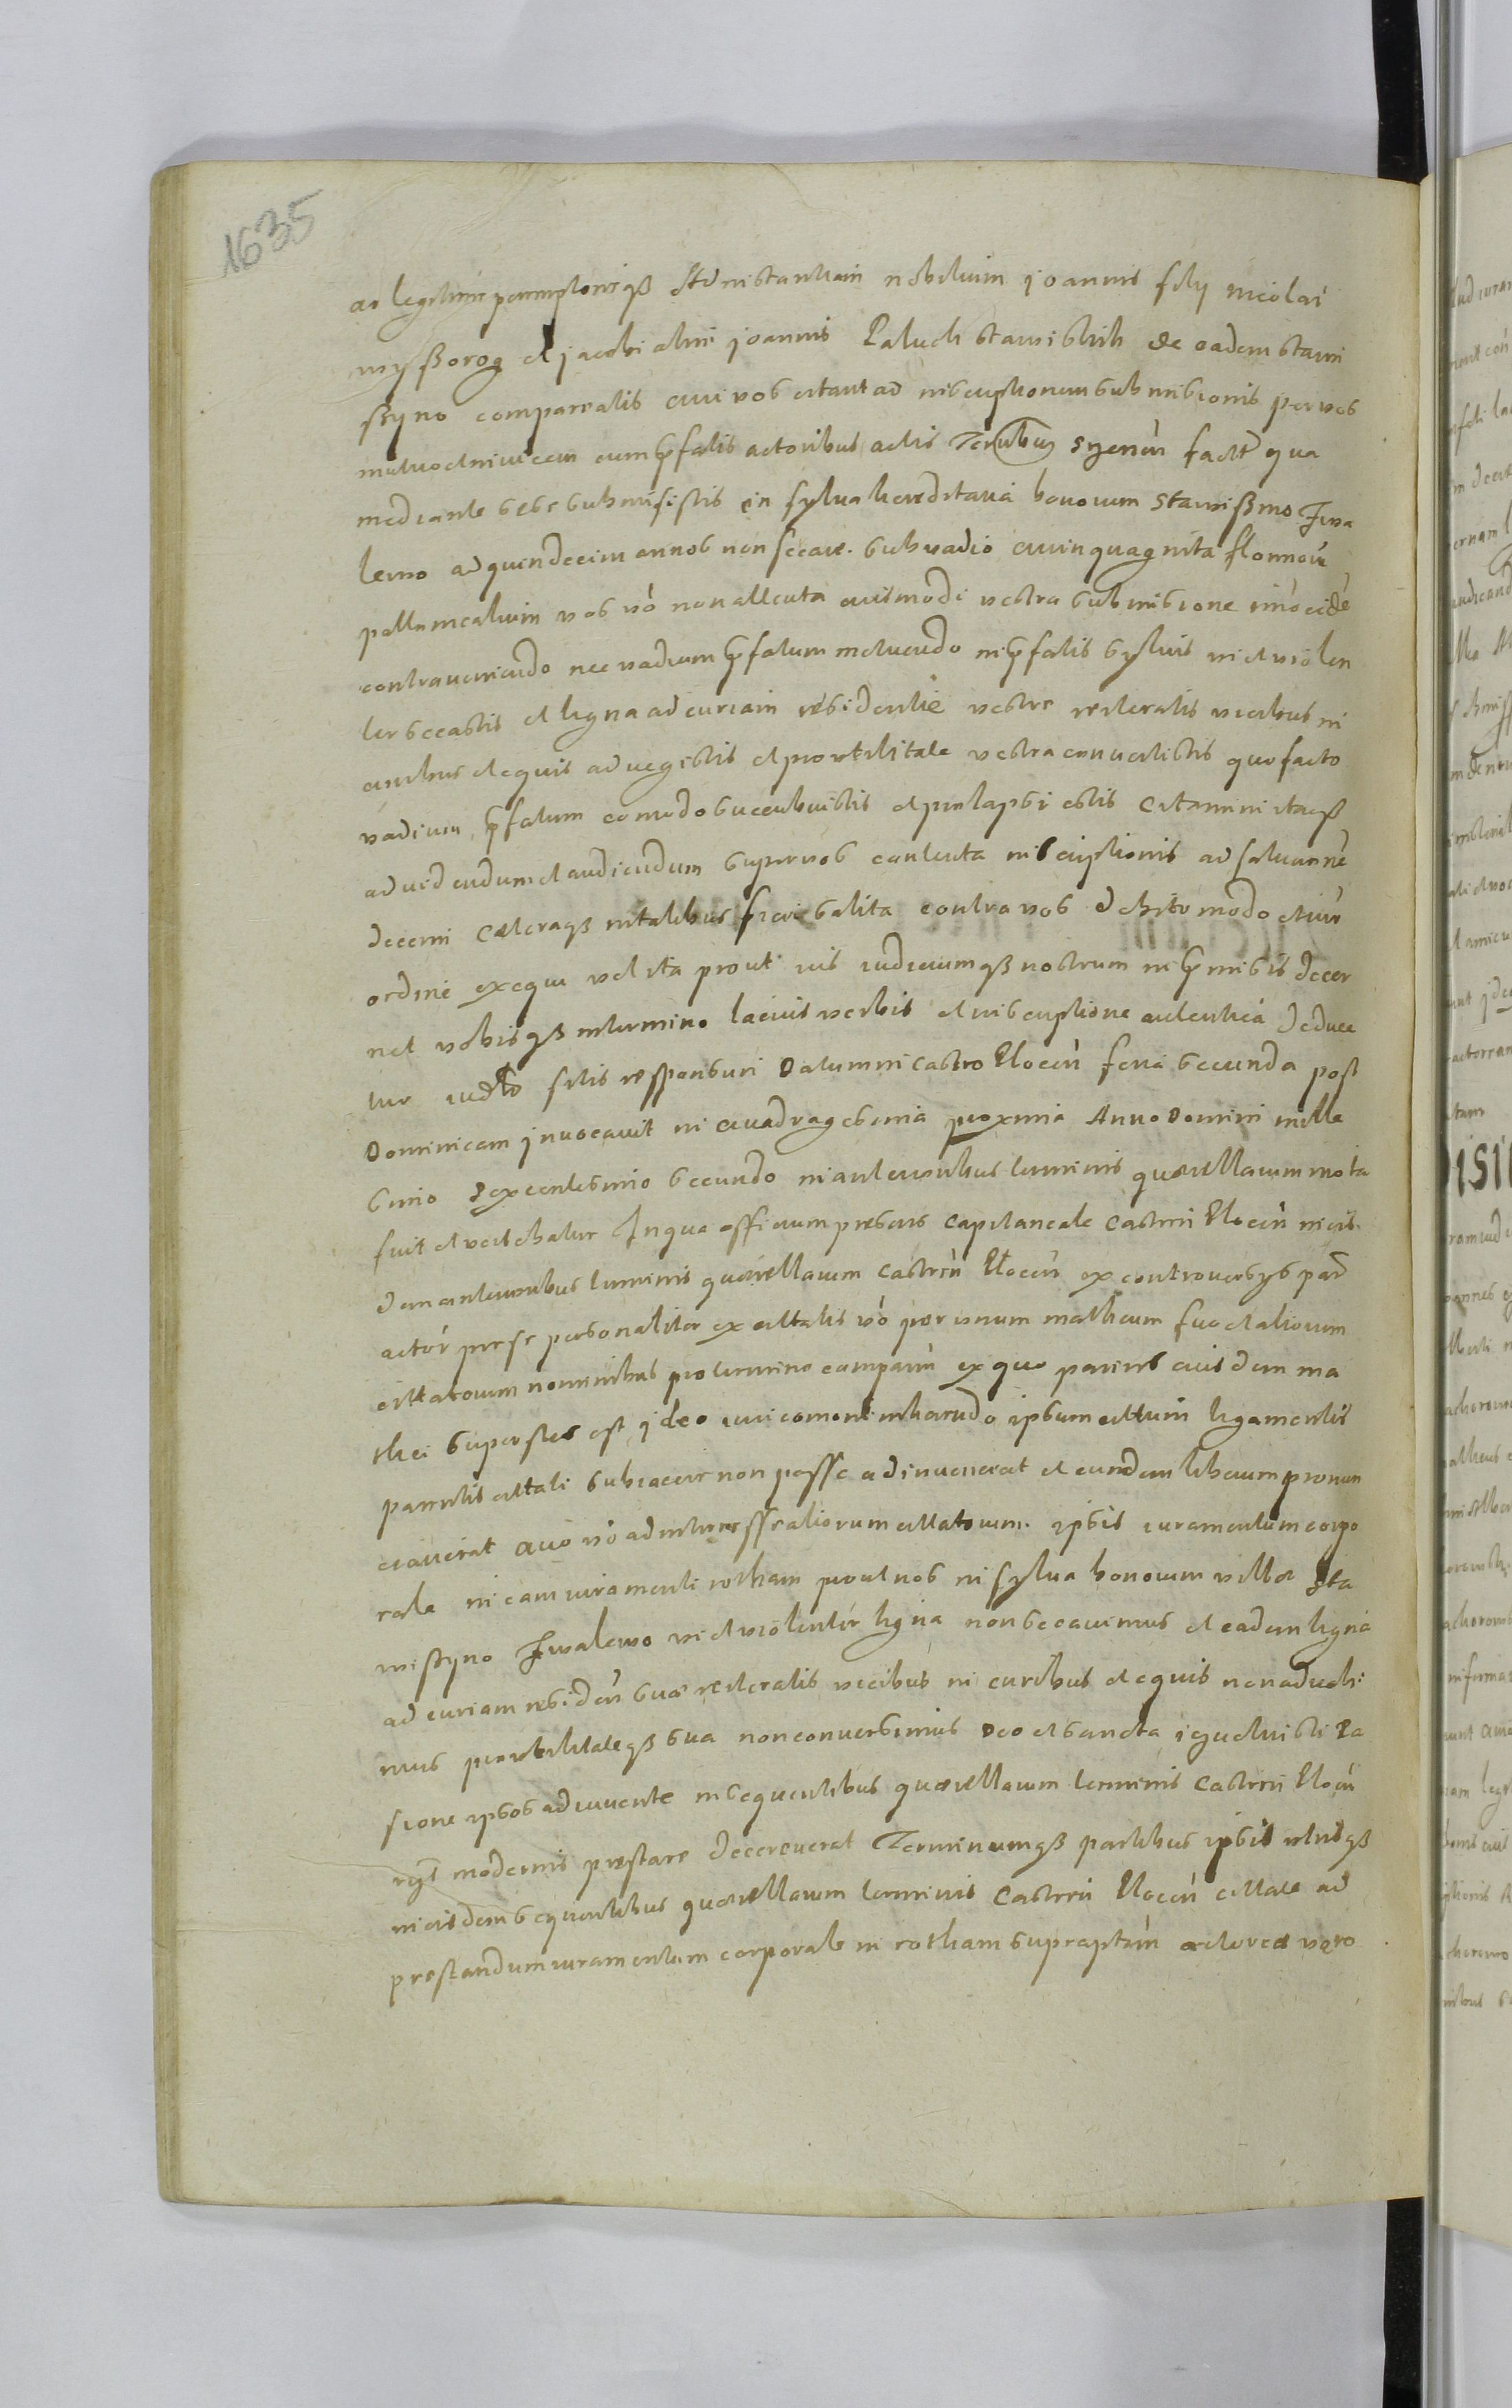 1635
ac legitime peremptorieqß Ad instantiam nobilium joannis filÿ nicolai
myßorog et jacobi olim joannis Paluch stawiskih de eadem stawi
ßyno compareatis qui vos citant ad inscriptionem submissionis per vos
mutuo et invicem cum prefatis actoribus actis Terribus Syenen fact qua
mediante sese submisistis in sylua hereditaria bonorum Stawißyno Jwa
lewo ad quindecim annos non secare sub vadio quinquaginta florenor
pollonicalium vos vo non attenta eiusmodi vestra submissione imo eide
contraueniendo nec vadium prefatum metuendo in prefatis syluis vi et violen
ter secastis et ligna ad curiam residentie vestre reiteratis vicibus in
curribus et equis aduegistis et pro utilitate vestra conuertistis quo facto
vadium prefatum eo modo succubuistis et prolapsi estis Citamini itaqß
ad videndum et audiendum super vos contenta inscriptionis ad saluanne
decerni Caeteraqß in talibus fieri solita contra vos debito modo et iur
ordine exequi vel ita prout ius iudiciumqß nostrum in premissis decer
net vobisqß in termino lacius verbis et inscriptione autentica deduce
tur iudte sitis responsuri Datum in castro Plocen feria secunda post
Dominicam jnuocauit in quadragesima proxima Anno Domini mille
simo Sexcentesimo secundo in anterioribus terminis querellarum mota
fuit et vertebatur In qua officium presens Capitaneale Castren Plocen in eis
dem anterioribus terminis querellarum Castren Plocen ex controuersÿs par
actor per se personaliter ex cittatis vo per unum matheum suo et aliorum
cittatorum nominibus pro termino comparen ex quo parens eiusdem ma
thei superstes est ideo iuri comoni inherendo ipsum cittum ligamentis
parentis cittati subiacere non posse adinuenerat et eundem liberum pronun
ciauerat quo vo ad interesse aliorum cittatorum ipsis iuramentum corpo
rale in eam iuramenti rotham prout nos in sylua bonorum villae Sta
wißyno Jwalewo vi et violenter ligna non secauimus et eadem ligna
ad curiam residen suae reiteratis vicibus in curribus et equis non aduexi
mus pro utilitateqß sua non conuersimus Deo et sancta eius christi Pa
sione ipsos adiuuente in sequentibus querellarum terminis Castren Plocen
modernis prestare decreuerat Terminumqß partibus ipsis utrisqß
in eisdem sequentibus querellarum terminis Castren Plocen cittatae ad
prestandum iuramentum corporale in rotham supraptam actoreae vero